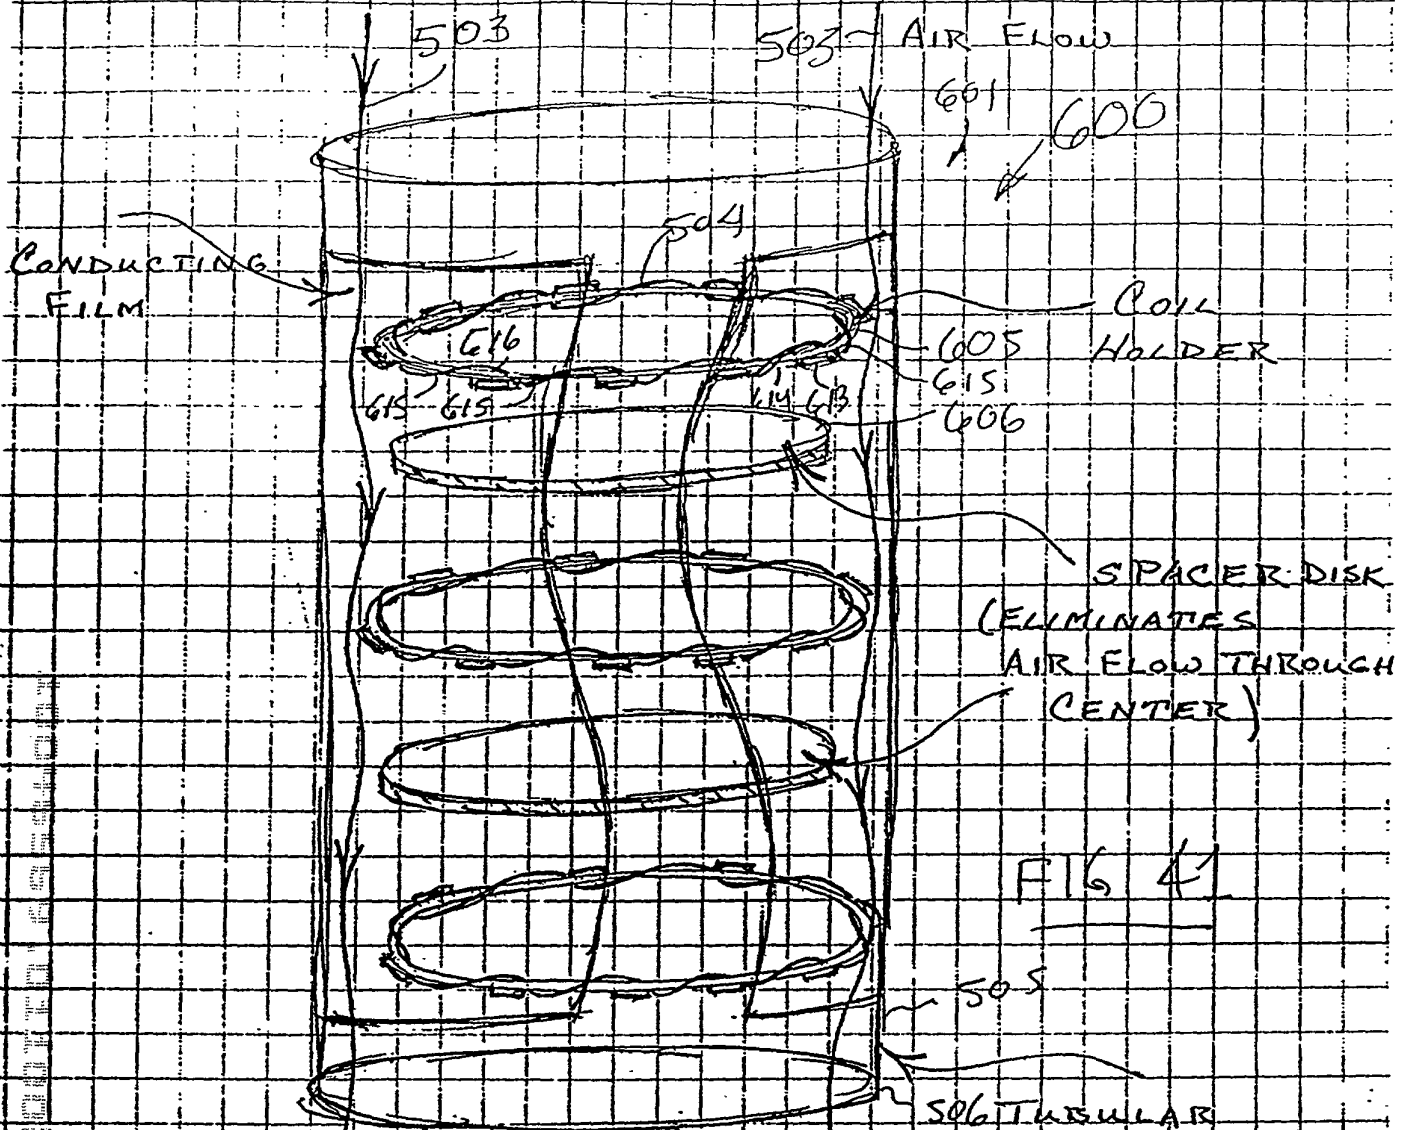 503
503 AIR FLOW
601
600
504
CONDUCTING
FILM
COIL
HOLDER
616
605
615
615
615
614
613
606
SPACER DISK
(ELIMINATES
AIR FLOW THROUGH
CENTER)
FIG 41
505
506 TUBULAR